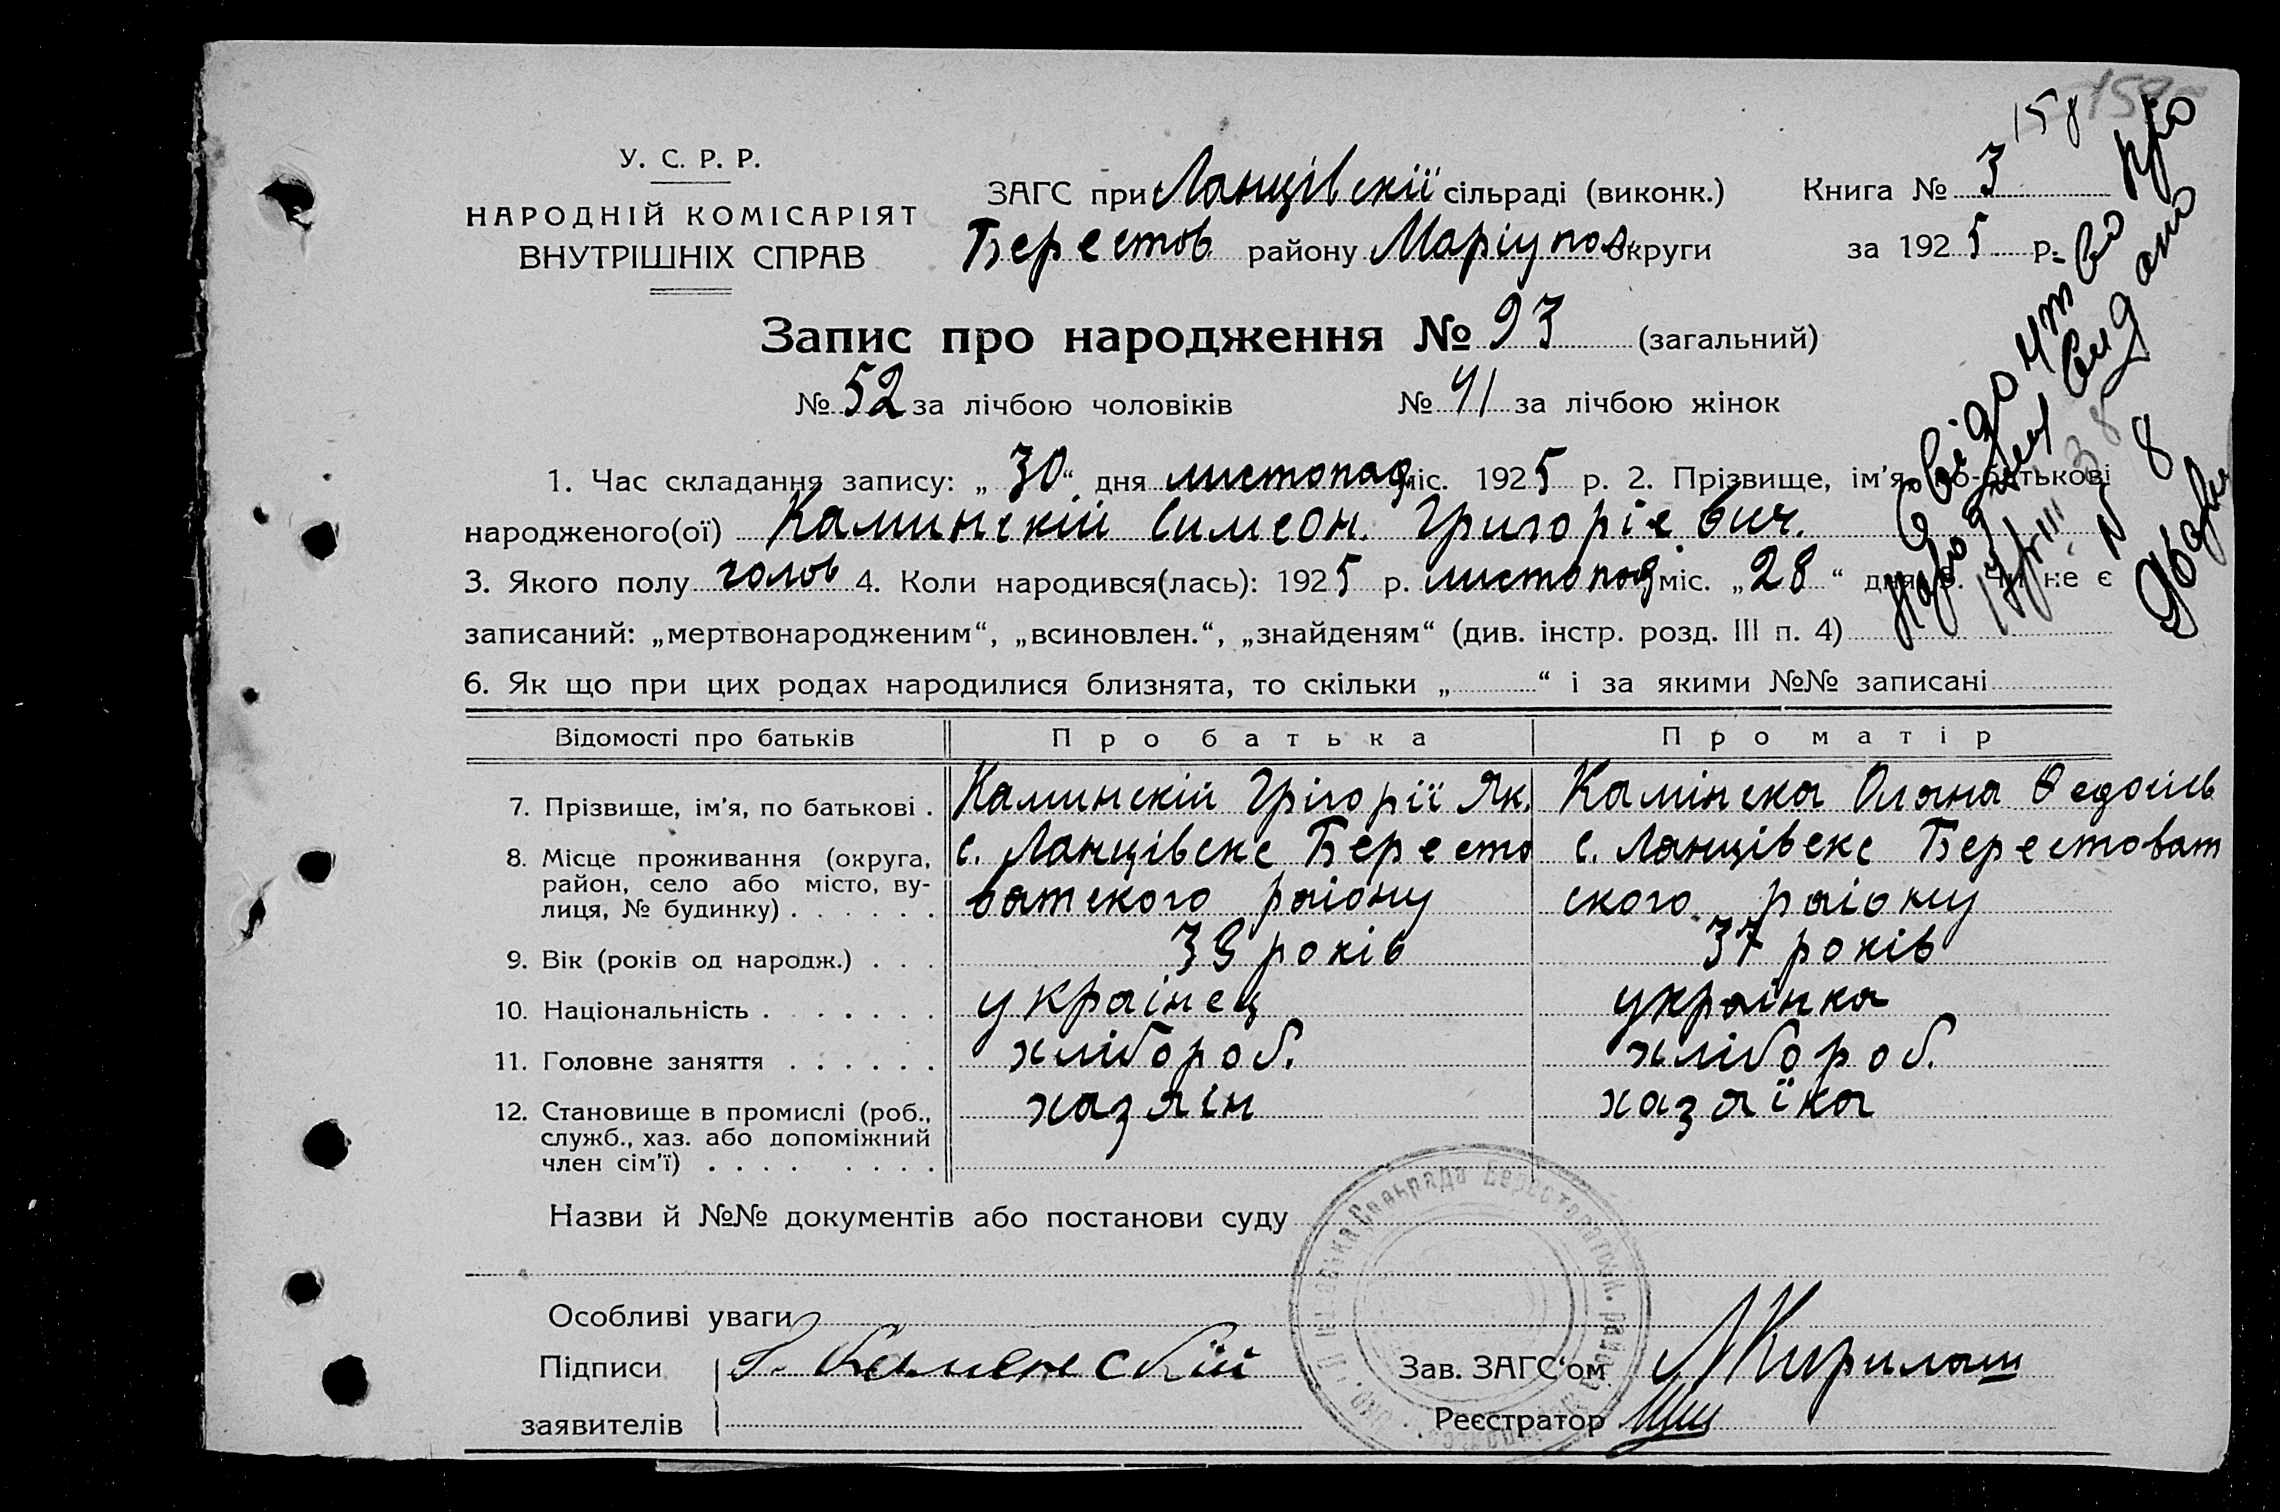 158
У. С. Р. Р.
НАРОДНІЙ КОМІСАРІЯТ
ВНУТРІШНІХ СПРАВ
ЗАГС при Ланцівскії сільраді (виконк.)
Берестов району Маріупол. округи
Книга № 3
за 1925 р.
Запис про народження № 93 (загальний)
№ 52 за лічбою чоловіків № 41 за лічбою жінок
Свідоцтво про
народжен видано
N 8
1. Час складання запису: „30“ дня листопад міс. 1925 р. 2. Прізвище, ім’я, по-батькові
народженого(ої) Каминскій Симеон. Григорієвич.
3. Якого полу чолов 4. Коли народився(лась): 1925 р. листопад міс. „28“ дня 5. Чи не є
записаний: „мертвонародженим“, „всиновлен.“, „знайденям“ (див. інстр. розд. III п. 4)
6. Як що при цих родах народилися близнята, то скільки „ “ і за якими №№ записані
Відомості про батьків Про батька Про матір
7. Прізвище, ім’я, по батькові . Каминскій Грігорії Як. Камінска Олана Ѳедосіїв
8. Місце проживання (округа, район, село або місто, вулиця, № будинку) . . . . . . с. Ланцівске Бересто с. Ланцівске Берестоват
ватского раіону ского раіону
9. Вік (років од народж.) . . . 39 років 37 років
10. Національність . . . . . . . украінец украінка
11. Головне заняття . . . . . . хлібороб. хлібороб.
12. Становище в промислі (роб., служб., хаз. або допоміжний член сім’ї) . . . . . . . . . хазяін хазяїка
Назви й №№ документів або постанови суду
Особливі уваги
Підписи Г. Каменскій Зав. ЗАГС‘ом Кирилаш
заявителів Реєстратор